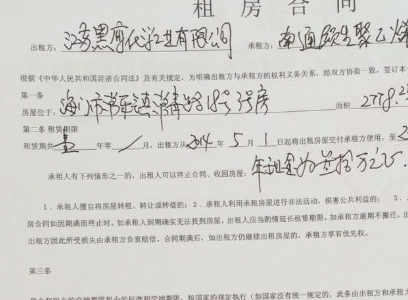 租 房 合 同
出租方：江苏黑 化学工业有限公司 承租方：南通 聚乙烯
根据《中华人民共和国经济合同法》及有关规定，为明确出租方与承租方的权利义务关系，经双方协商一致，签订本
第一条
房屋位于：海门市常乐镇 路18号3号房 面积 2778.2
第二条 租赁期限
租赁期共壹年零/月，出租方从2014年5月1日起将出租房屋交付承租方使用，至2
年租金为叁拾万元。
承租人有下列情形之一的，出租人可以终止合同、收回房屋：
1．承租人擅自将房屋转租、转让或转借的；2．承租人利用承租房屋进行非法活动，损害公共利益的；3．
房合同如因期满而终止时，如承租人到期确实无法找到房屋，出租人应当酌情延长租赁期限。如承租方逾期不搬迁，出
出租方因此所受损失由承租方负责赔偿。合同期满后，如出租方仍继续出租房屋的，承租方享有优先权。
第三条